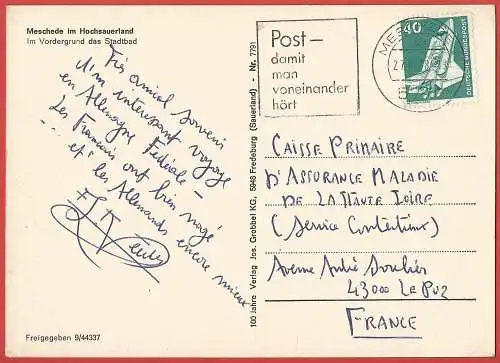 Meschede im Hochsauerland
Im Vordergrund das Stadtbad
Très amical souvenir
d'un intéressant voyage
en Allemagne Fédérale -
Les Français ont bien nagé
... et les Allemands encore mieux
Freigegeben 9/44337
100 Jahre Verlag Jos. Grobbel KG, 5948 Fredeburg (Sauerland) - Nr. 7791
Post-
damit
man
voneinander
hört
40
DEUTSCHE BUNDESPOST
CAISSE PRIMAIRE
D'ASSURANCE MALADIE
DE LA HAUTE LOIRE
(Service Contentieux)
Avenue André Soulier
43000 LE PUY
FRANCE